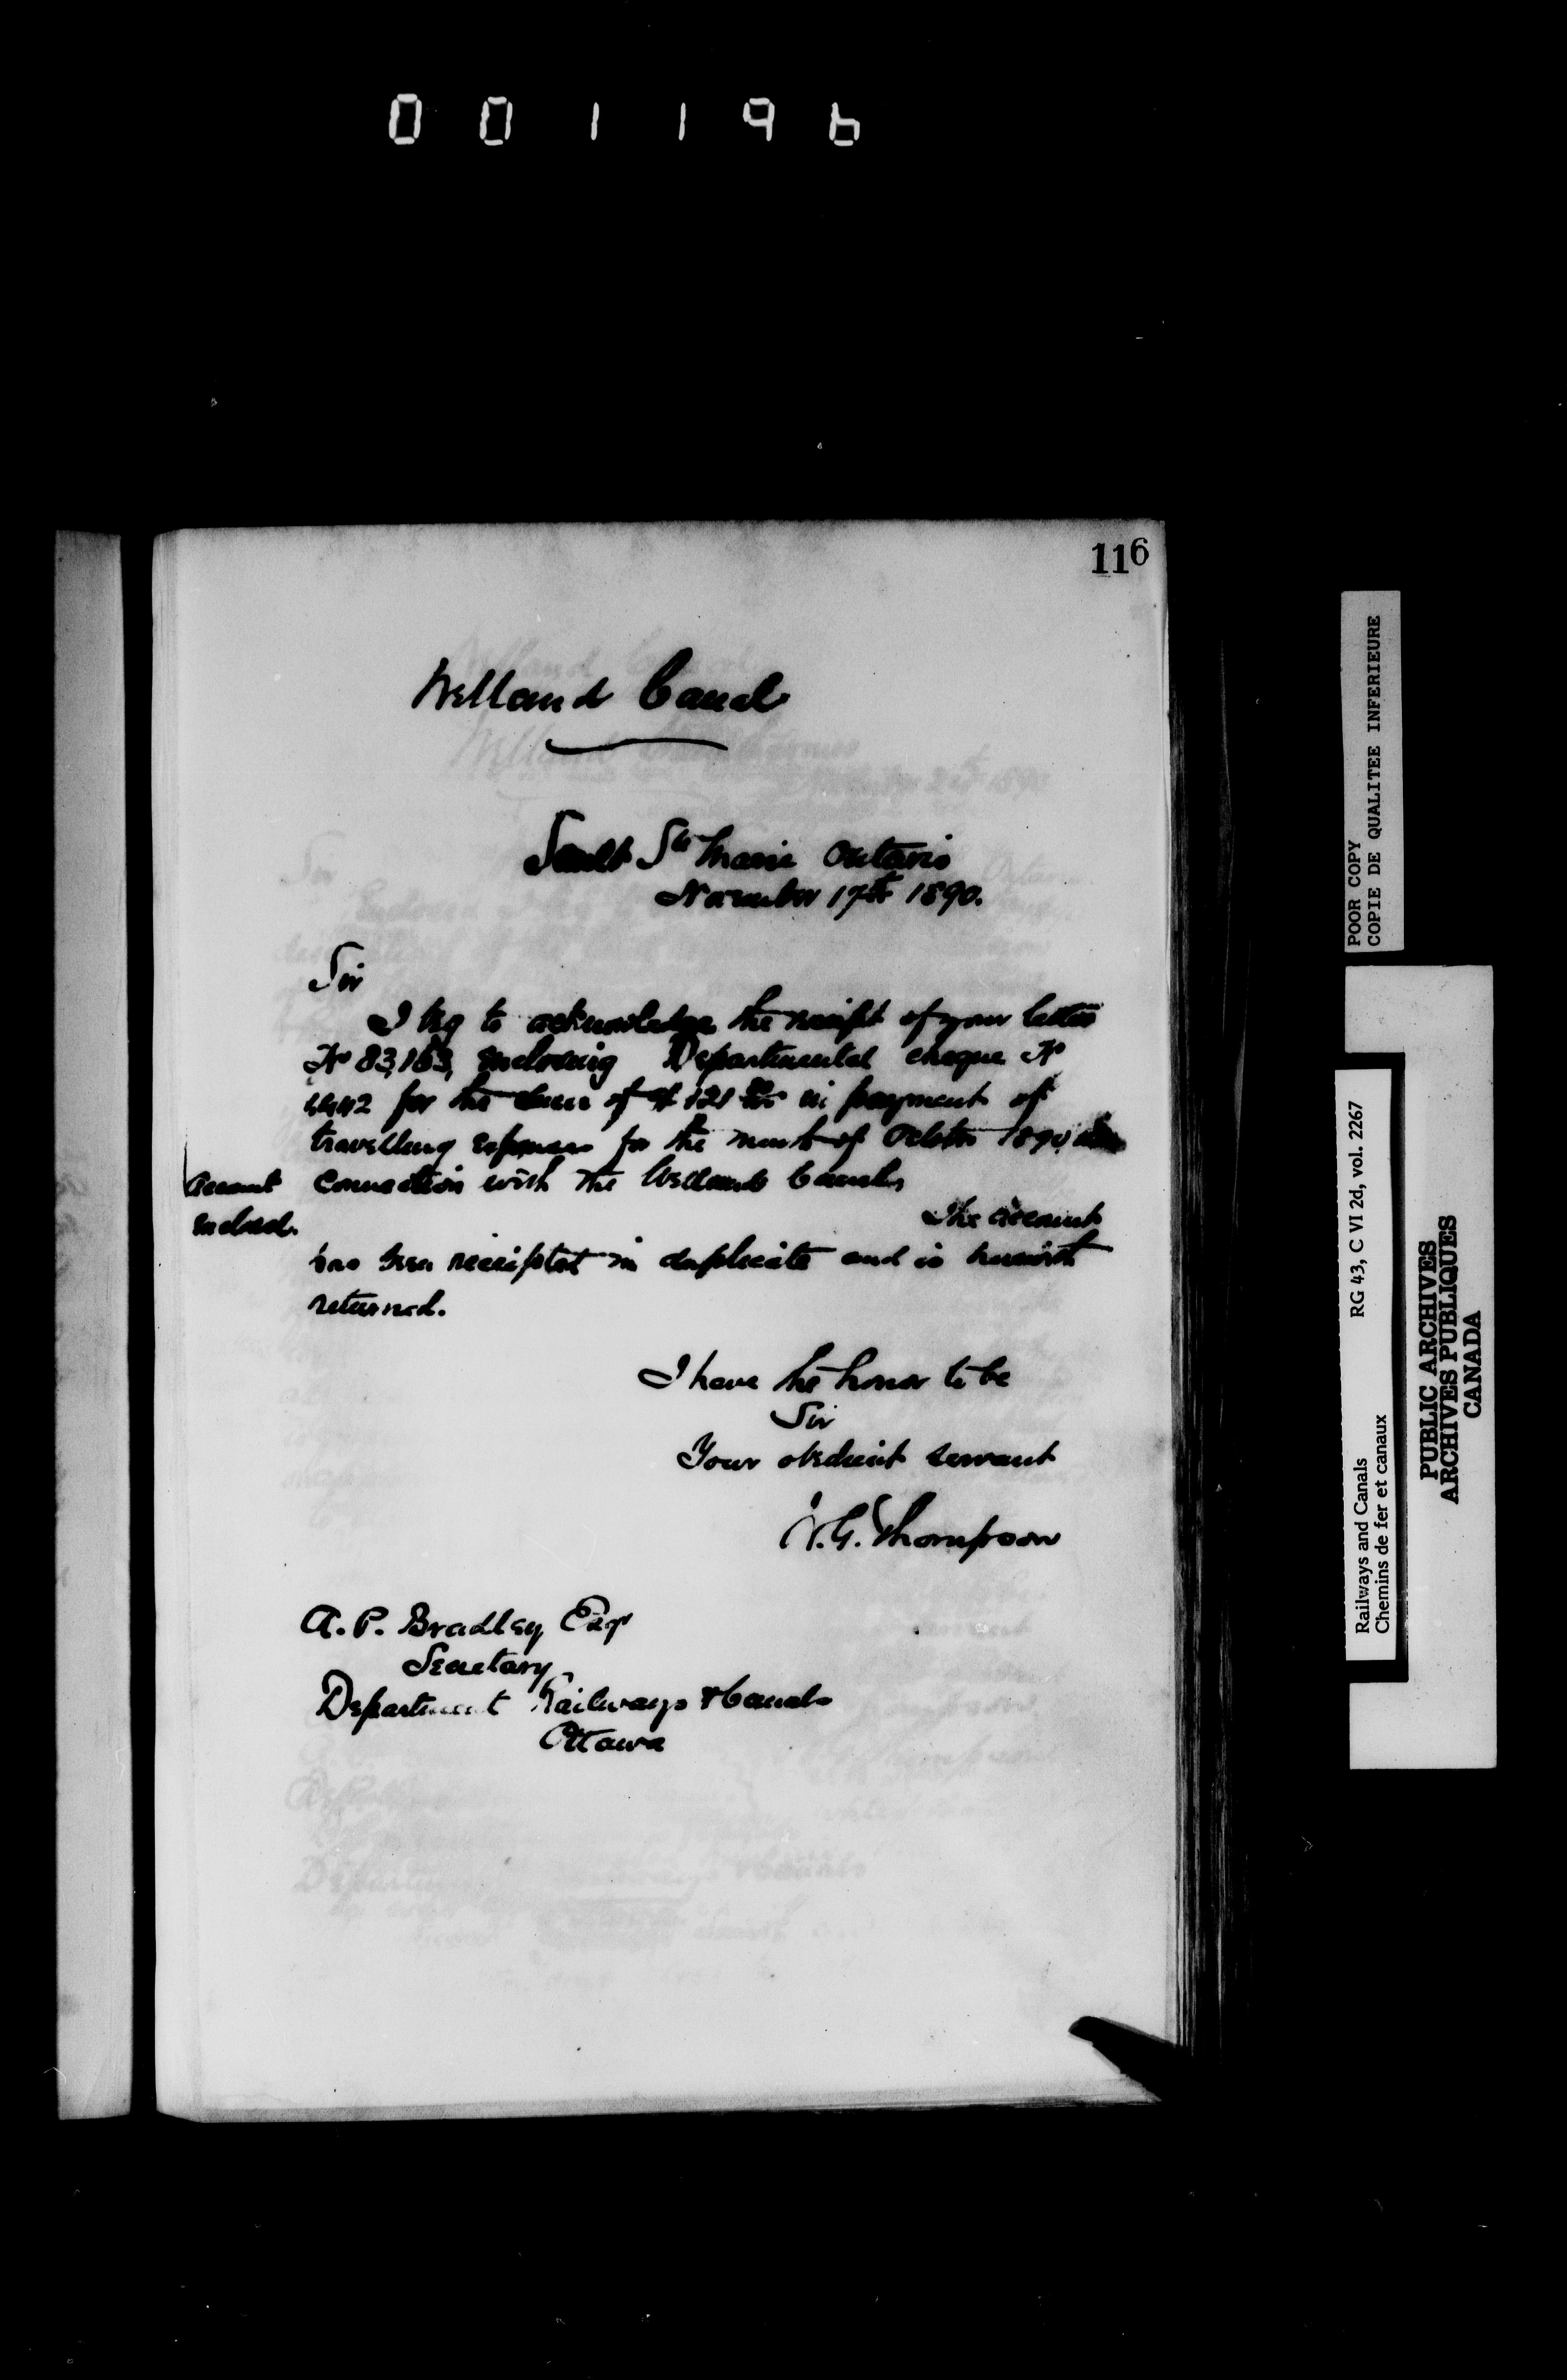 001196
116
Welland Canal
Sault Ste Marie Ontario
November 17th 1890.
Sir
I beg to acknowledge the receipt of your letter
No 83,163, enclosing Departmental cheque No
for the sum of $121 in payment of
travelling expenses for the month of October 1890 in
connection with the Welland Canal,
Account
enclosed.
The account
has been receipted in duplicate and is herewith
returned.
I have the honor to be
Sir
Your obedient servant
W.G. Thompson
A. P. Bradley Esqr
Secretary
Department Railways & Canals
Ottawa
POOR COPY
COPIE DE QUALITEE INFERIEURE
RG 43, C VI 2d, vol. 2267
Railways and Canals
Chemins de fer et canaux
PUBLIC ARCHIVES
ARCHIVES PUBLIQUES
CANADA